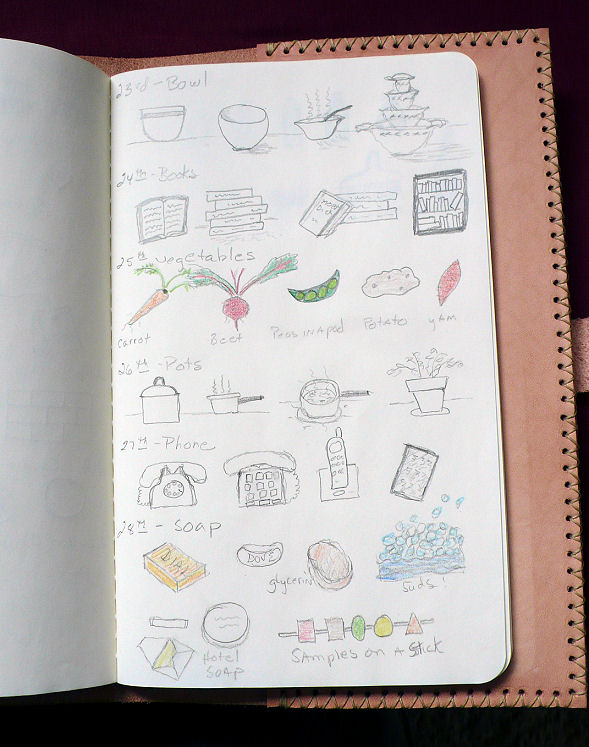 23rd - Bowl
24th - Books
25th Vegetables
Carrot
Beet
Peas IN A pod
Potato
yAM
26th - Pots
27th - Phone
28th - Soap
DIAL
DOVE
glycerin
Suds!
Hotel
SOAP
SAmples on A Stick